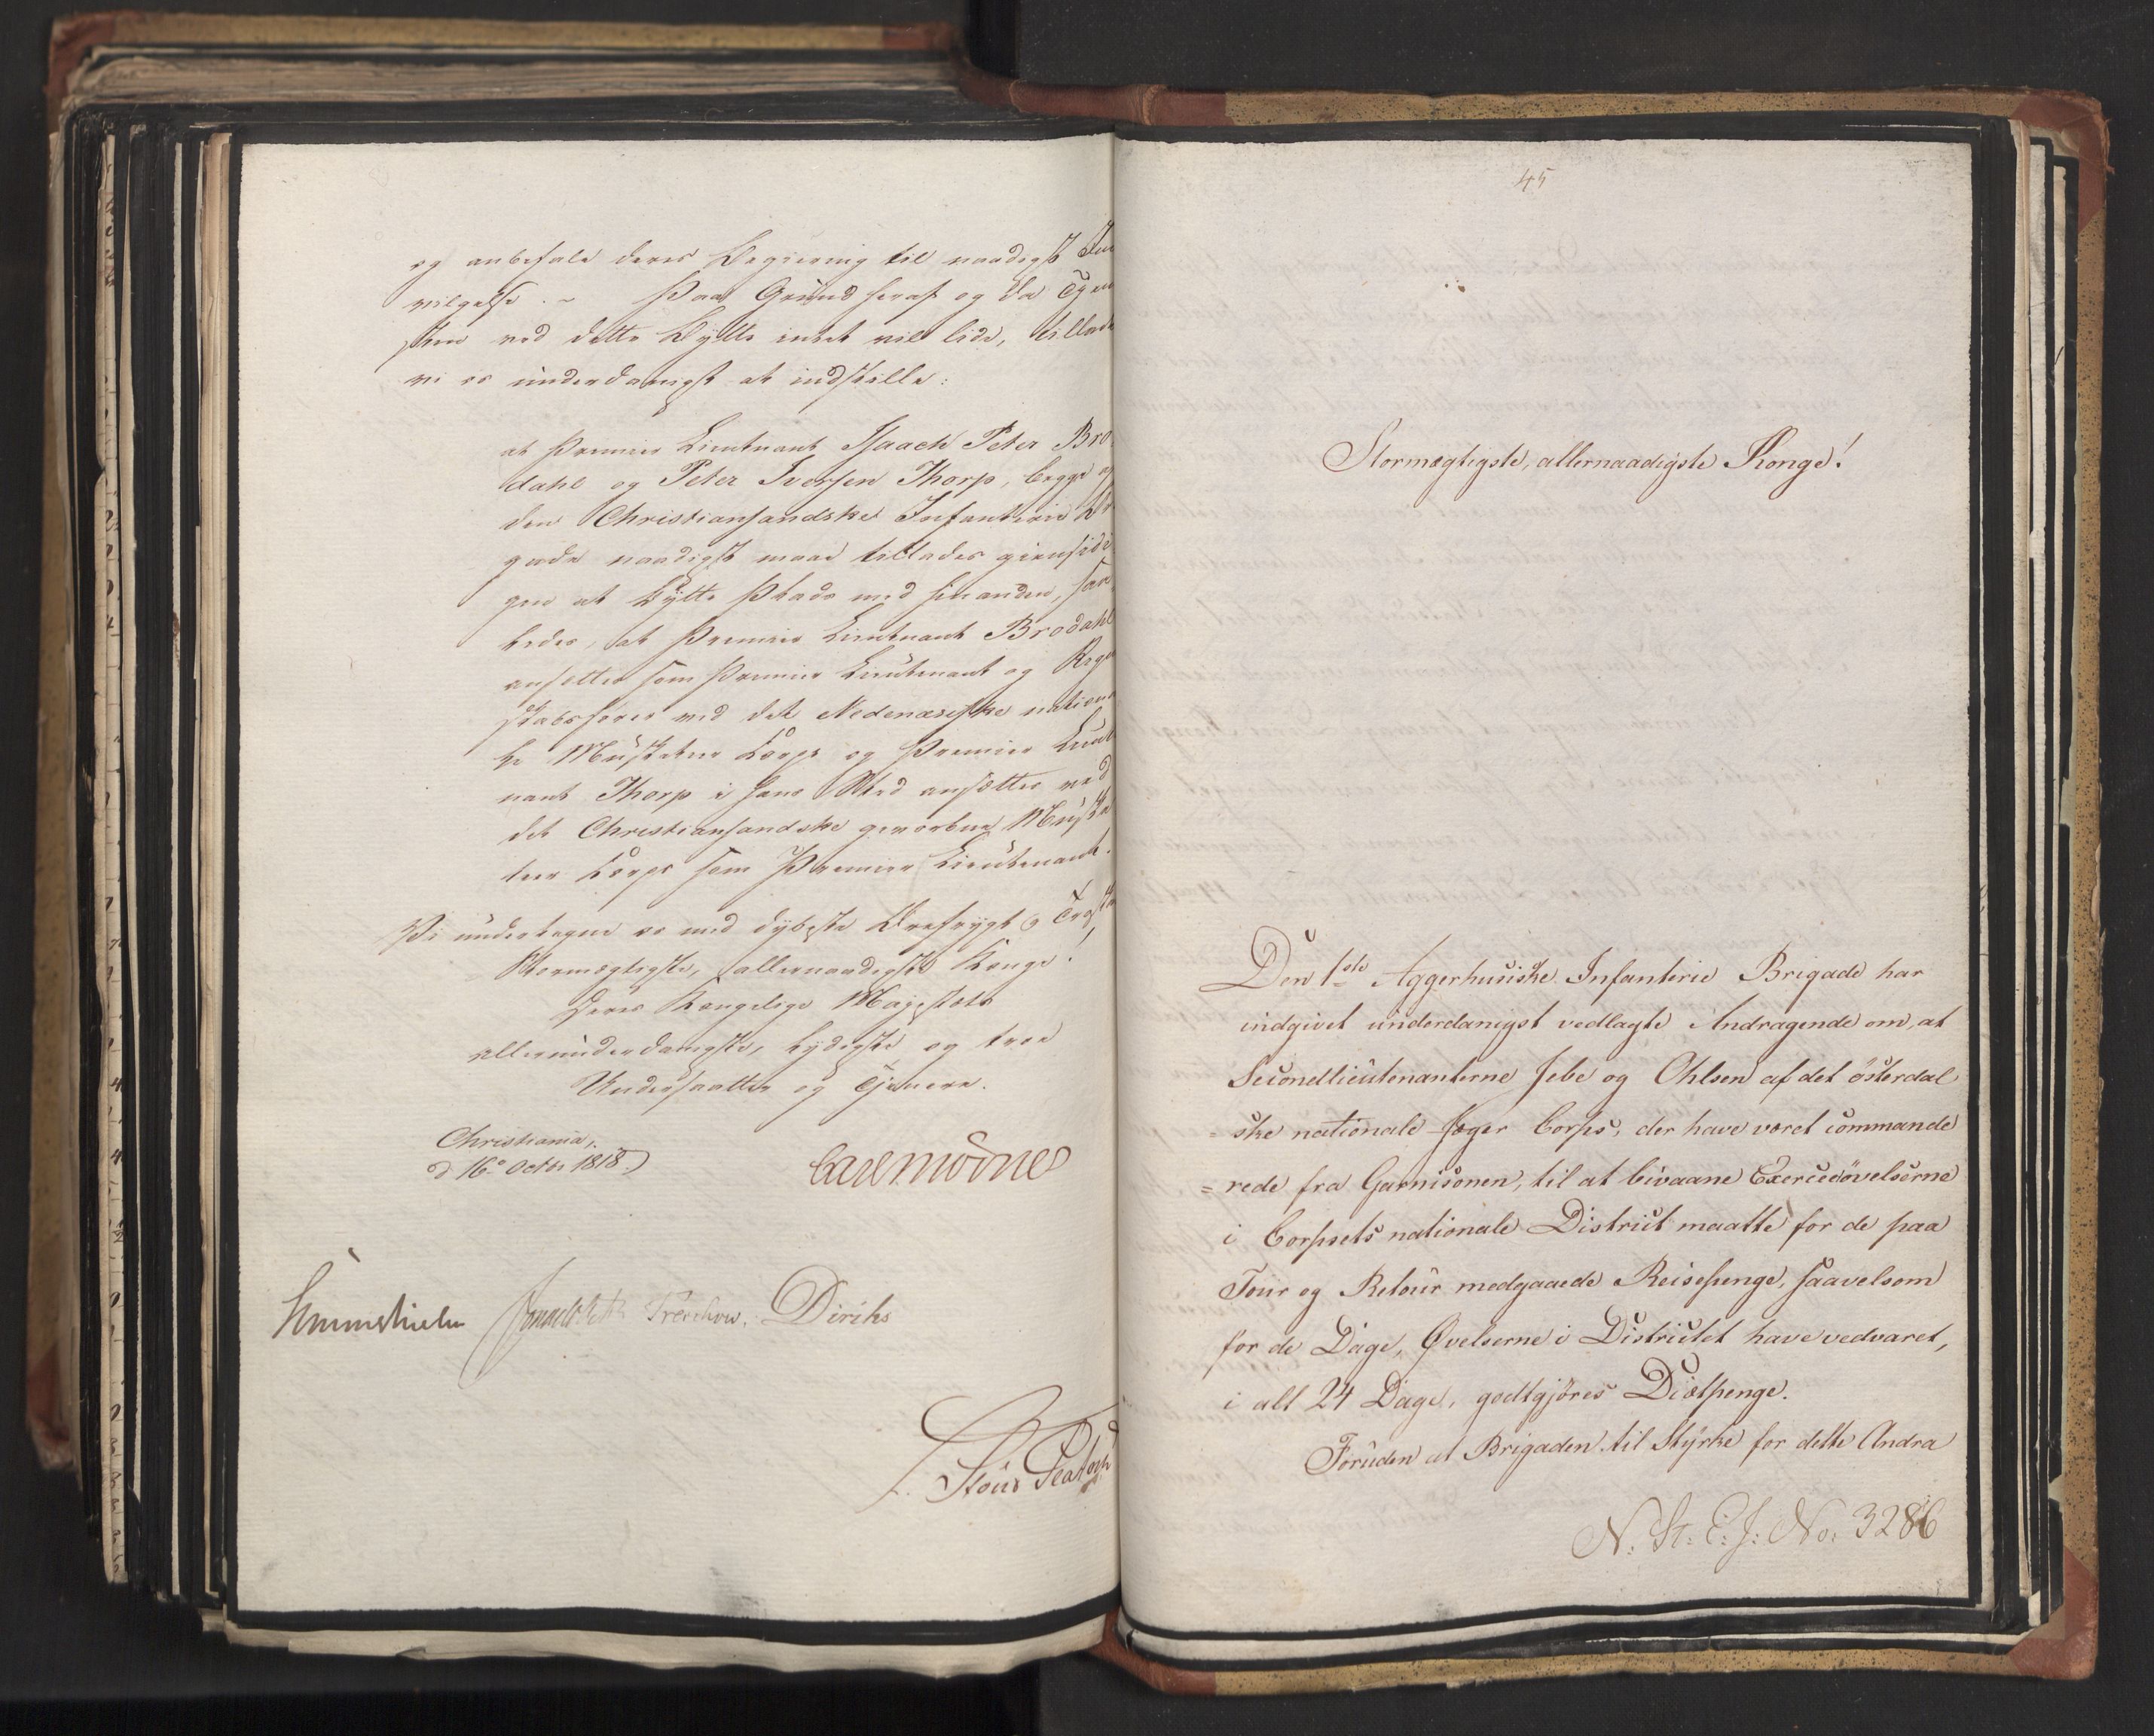 og anbefale deres Begiering til naadigst Ind
vilgelse. – Paa Grund heraf og da Tjene
sten ved dette Bytte intet vil lide, tillade
vi os underdanigst at indstille:
at Premier Lieutnant Isaach Peter Bro
dahl og Peter Iversen Thorp, begge af
den Christiansandske Infanterie Bri
gade naadigst maae tillades gjensidi
gen at bytte Plads med hinanden, saa
ledes, at Premier Lieutnant Brodahl
ansættes som Premier Lieutenant og Regn
skabsfører ved det Nedenæsiske nationa
le Musketeer Corps og Premier Lieut
nant Thorp i hans Sted ansættes ved
det Christiansandske gevorbne Muske
teer Corps som Premier Lieutenant.
Vi undertegne os med dybeste Ærefrygt og Troskab
Stormægtigste, allernaadigste Konge!
Deres Kongelige Majestæts
allerunderdanigste, lydigste og troe
Undersaatter og Tjenere.
Christiania,
d 16de Octbr 1818.
Carl Mörner
Hummelhielm Treschow. Diriks
45
Stormægtigste, allernaadigste Konge!
Den 1ste Aggerhusiske Infanterie Brigade har
indgivet underdanigst vedlagte Andragende om, at
Secondlieutenanterne Jebe og Ohlsen af det österdal
= ske nationale Jæger Corps, der have været commande
= rede fra Garnisonen, til at bivaane Exerceerövelserne
i Corpsets nationale District maatte for de paa
Tour og Retour medgaaede Reisepenge, saavelsom
for de Dage, Øvelserne i Districtet have vedvaret,
i alt 24 Dage, godtgjöres Diætpenge.
Foruden at Brigaden til Styrke for dette Andra
N: St: E: J: No: 3286